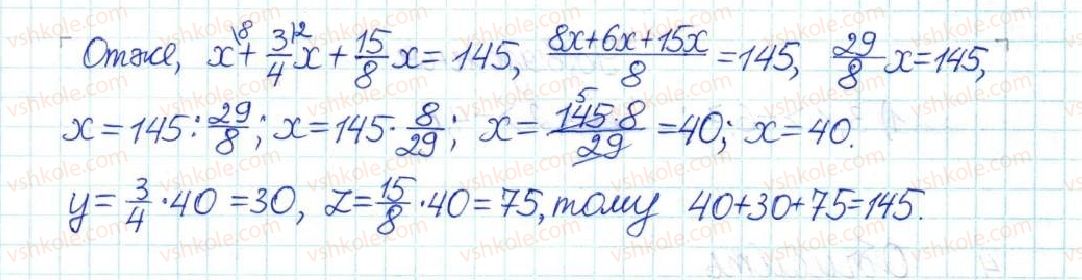 Отже, x\8 + 3/4\2 x + 15/8 x = 145, (8x+6x+15x)/8 = 145, 29/8 x = 145,
x = 145 : 29/8; x = 145 · 8/29; x = (145 · 8)/29 5 = 40; x = 40.
y = 3/4 · 40 = 30, z = 15/8 · 40 = 75, тому 40+30+75=145.